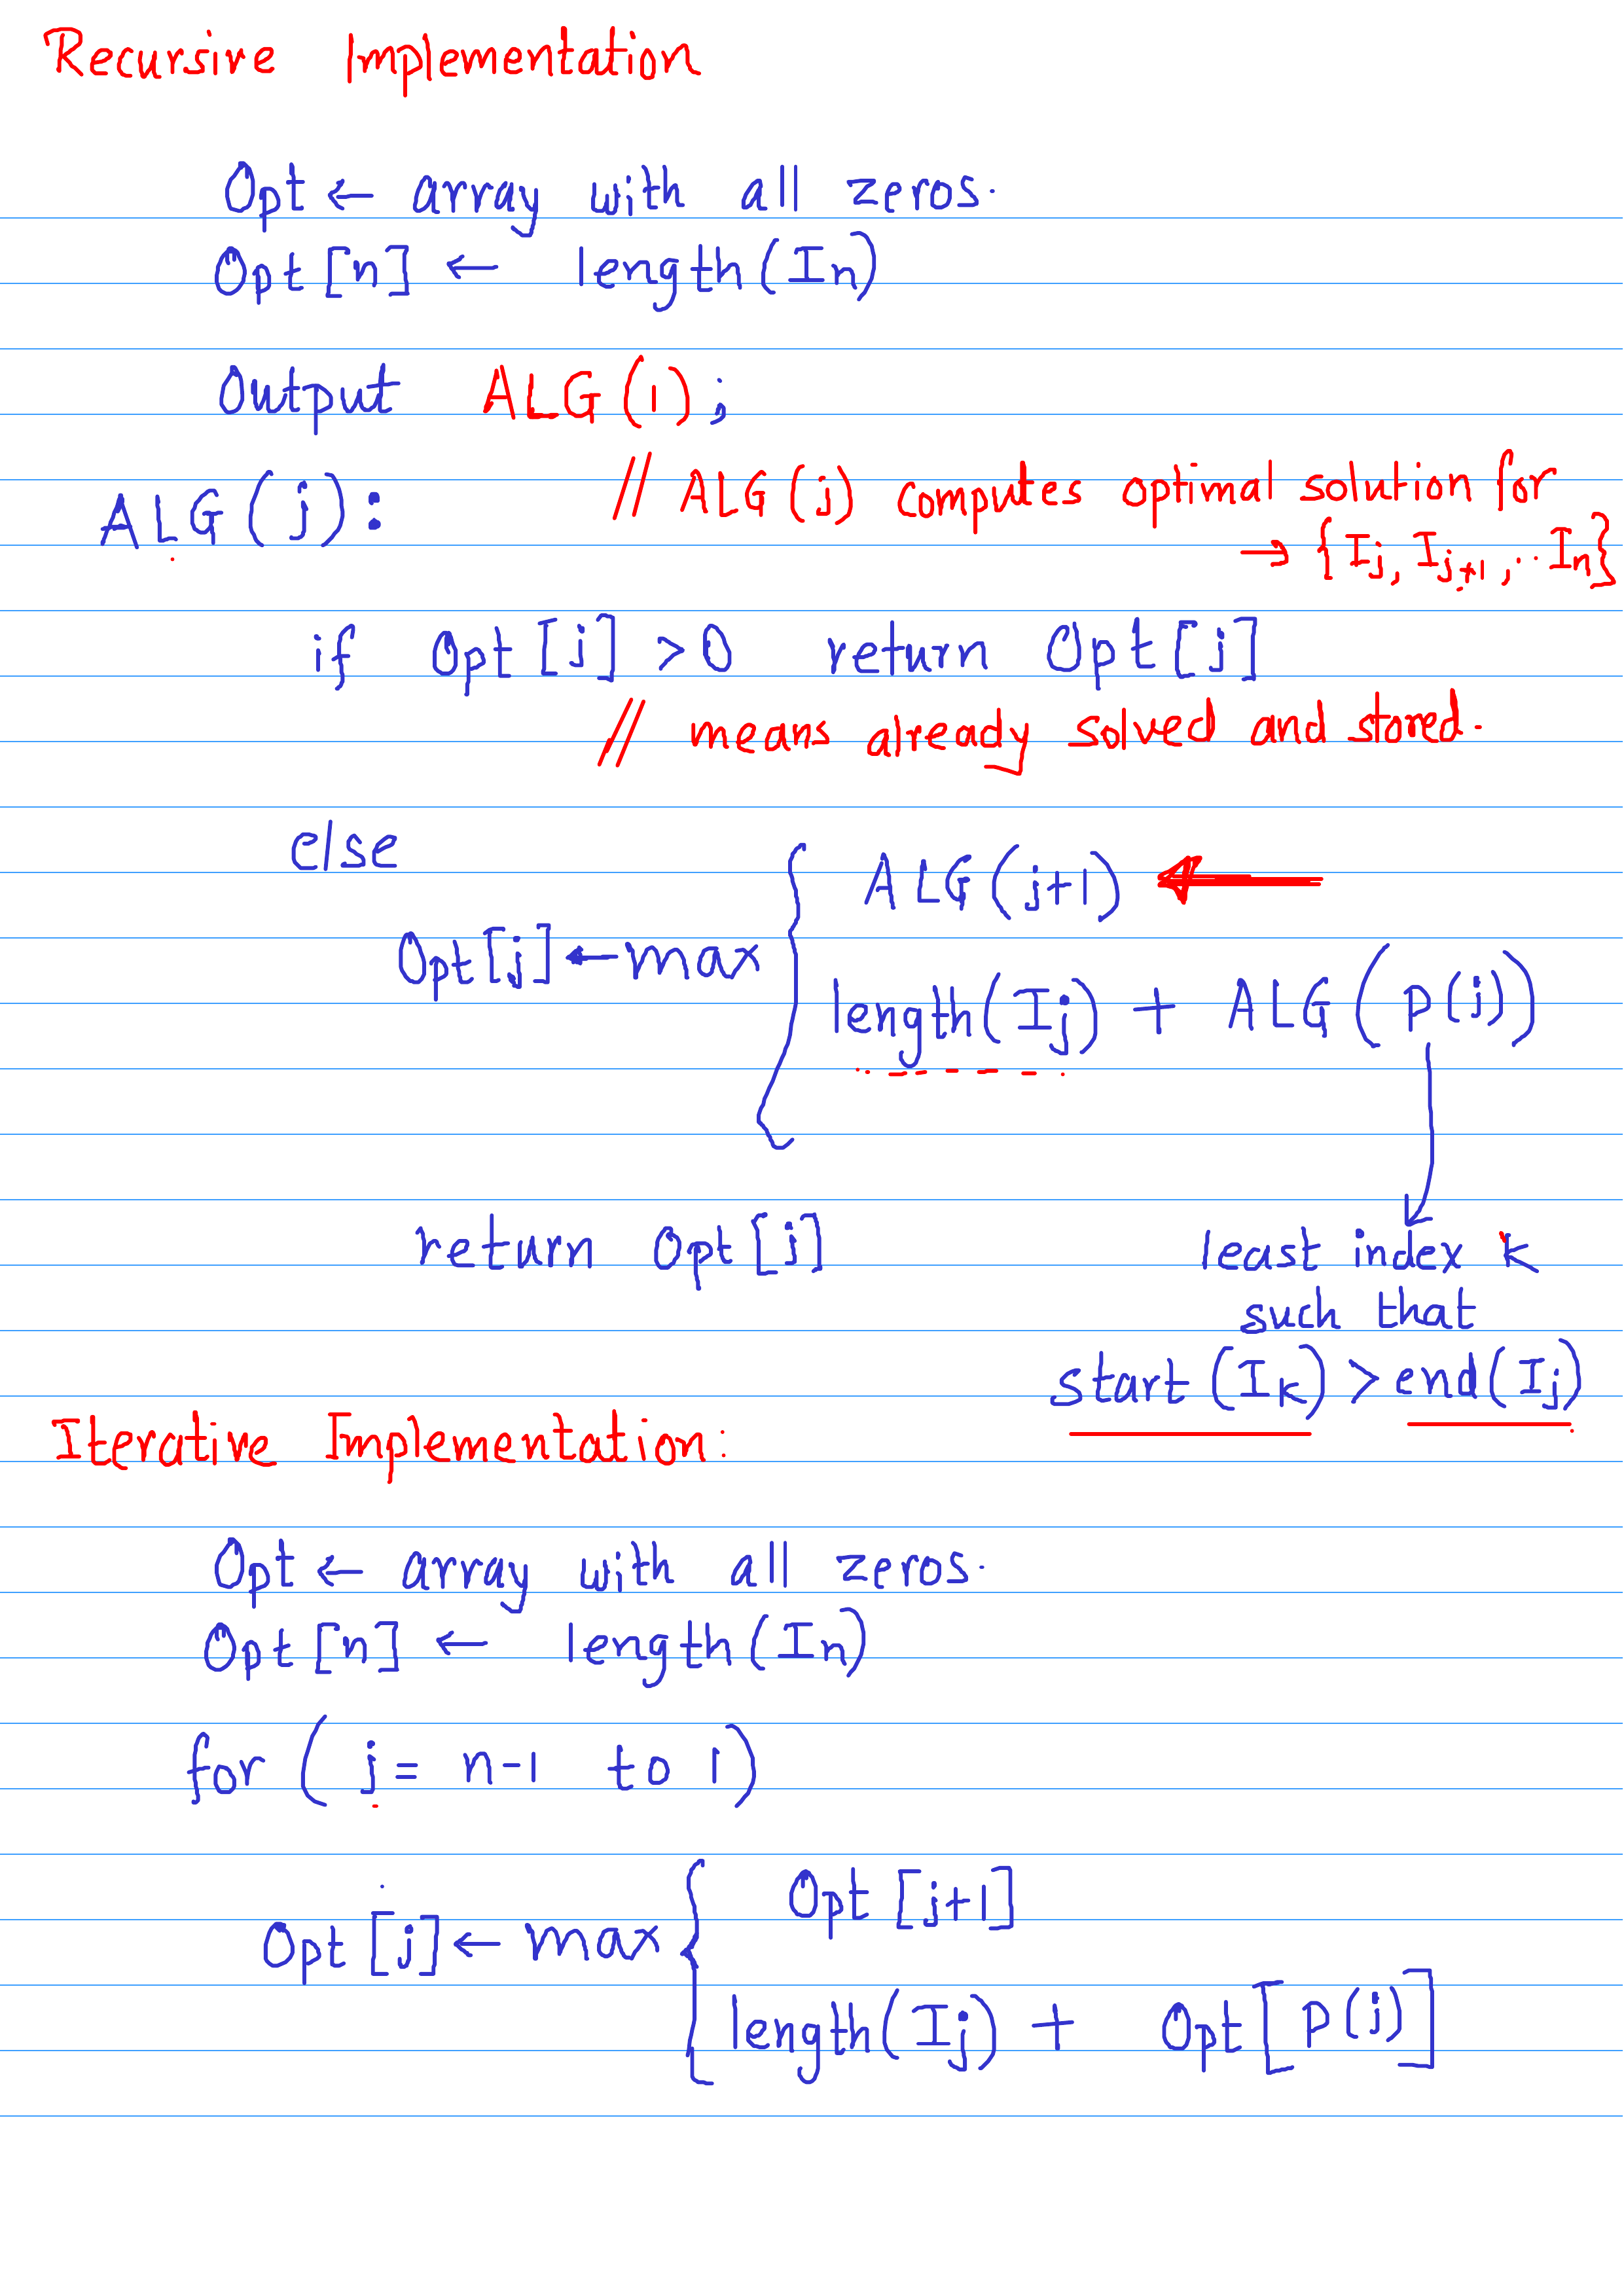 Recursive Implementation
Opt ← array with all zeros.
Opt[n] ← length(In)
Output ALG(1);
ALG(j): // ALG(j) computes optimal solution for
→ {Ij, Ij+1, .. In}
if Opt[j] >0 return Opt[j]
// means already solved and stored.
else
ALG(j+1) ←
Opt[j] ← max {
length(Ij) + ALG(P(j))
return Opt[j]
least index k
such that
start(Ik) > end(Ij)
Iterative Implementation:
Opt ← array with all zeros.
Opt[n] ← length(In)
for ( j = n-1 to 1)
Opt[j+1]
Opt[j] ← max {
length(Ij) + Opt[P(j)]